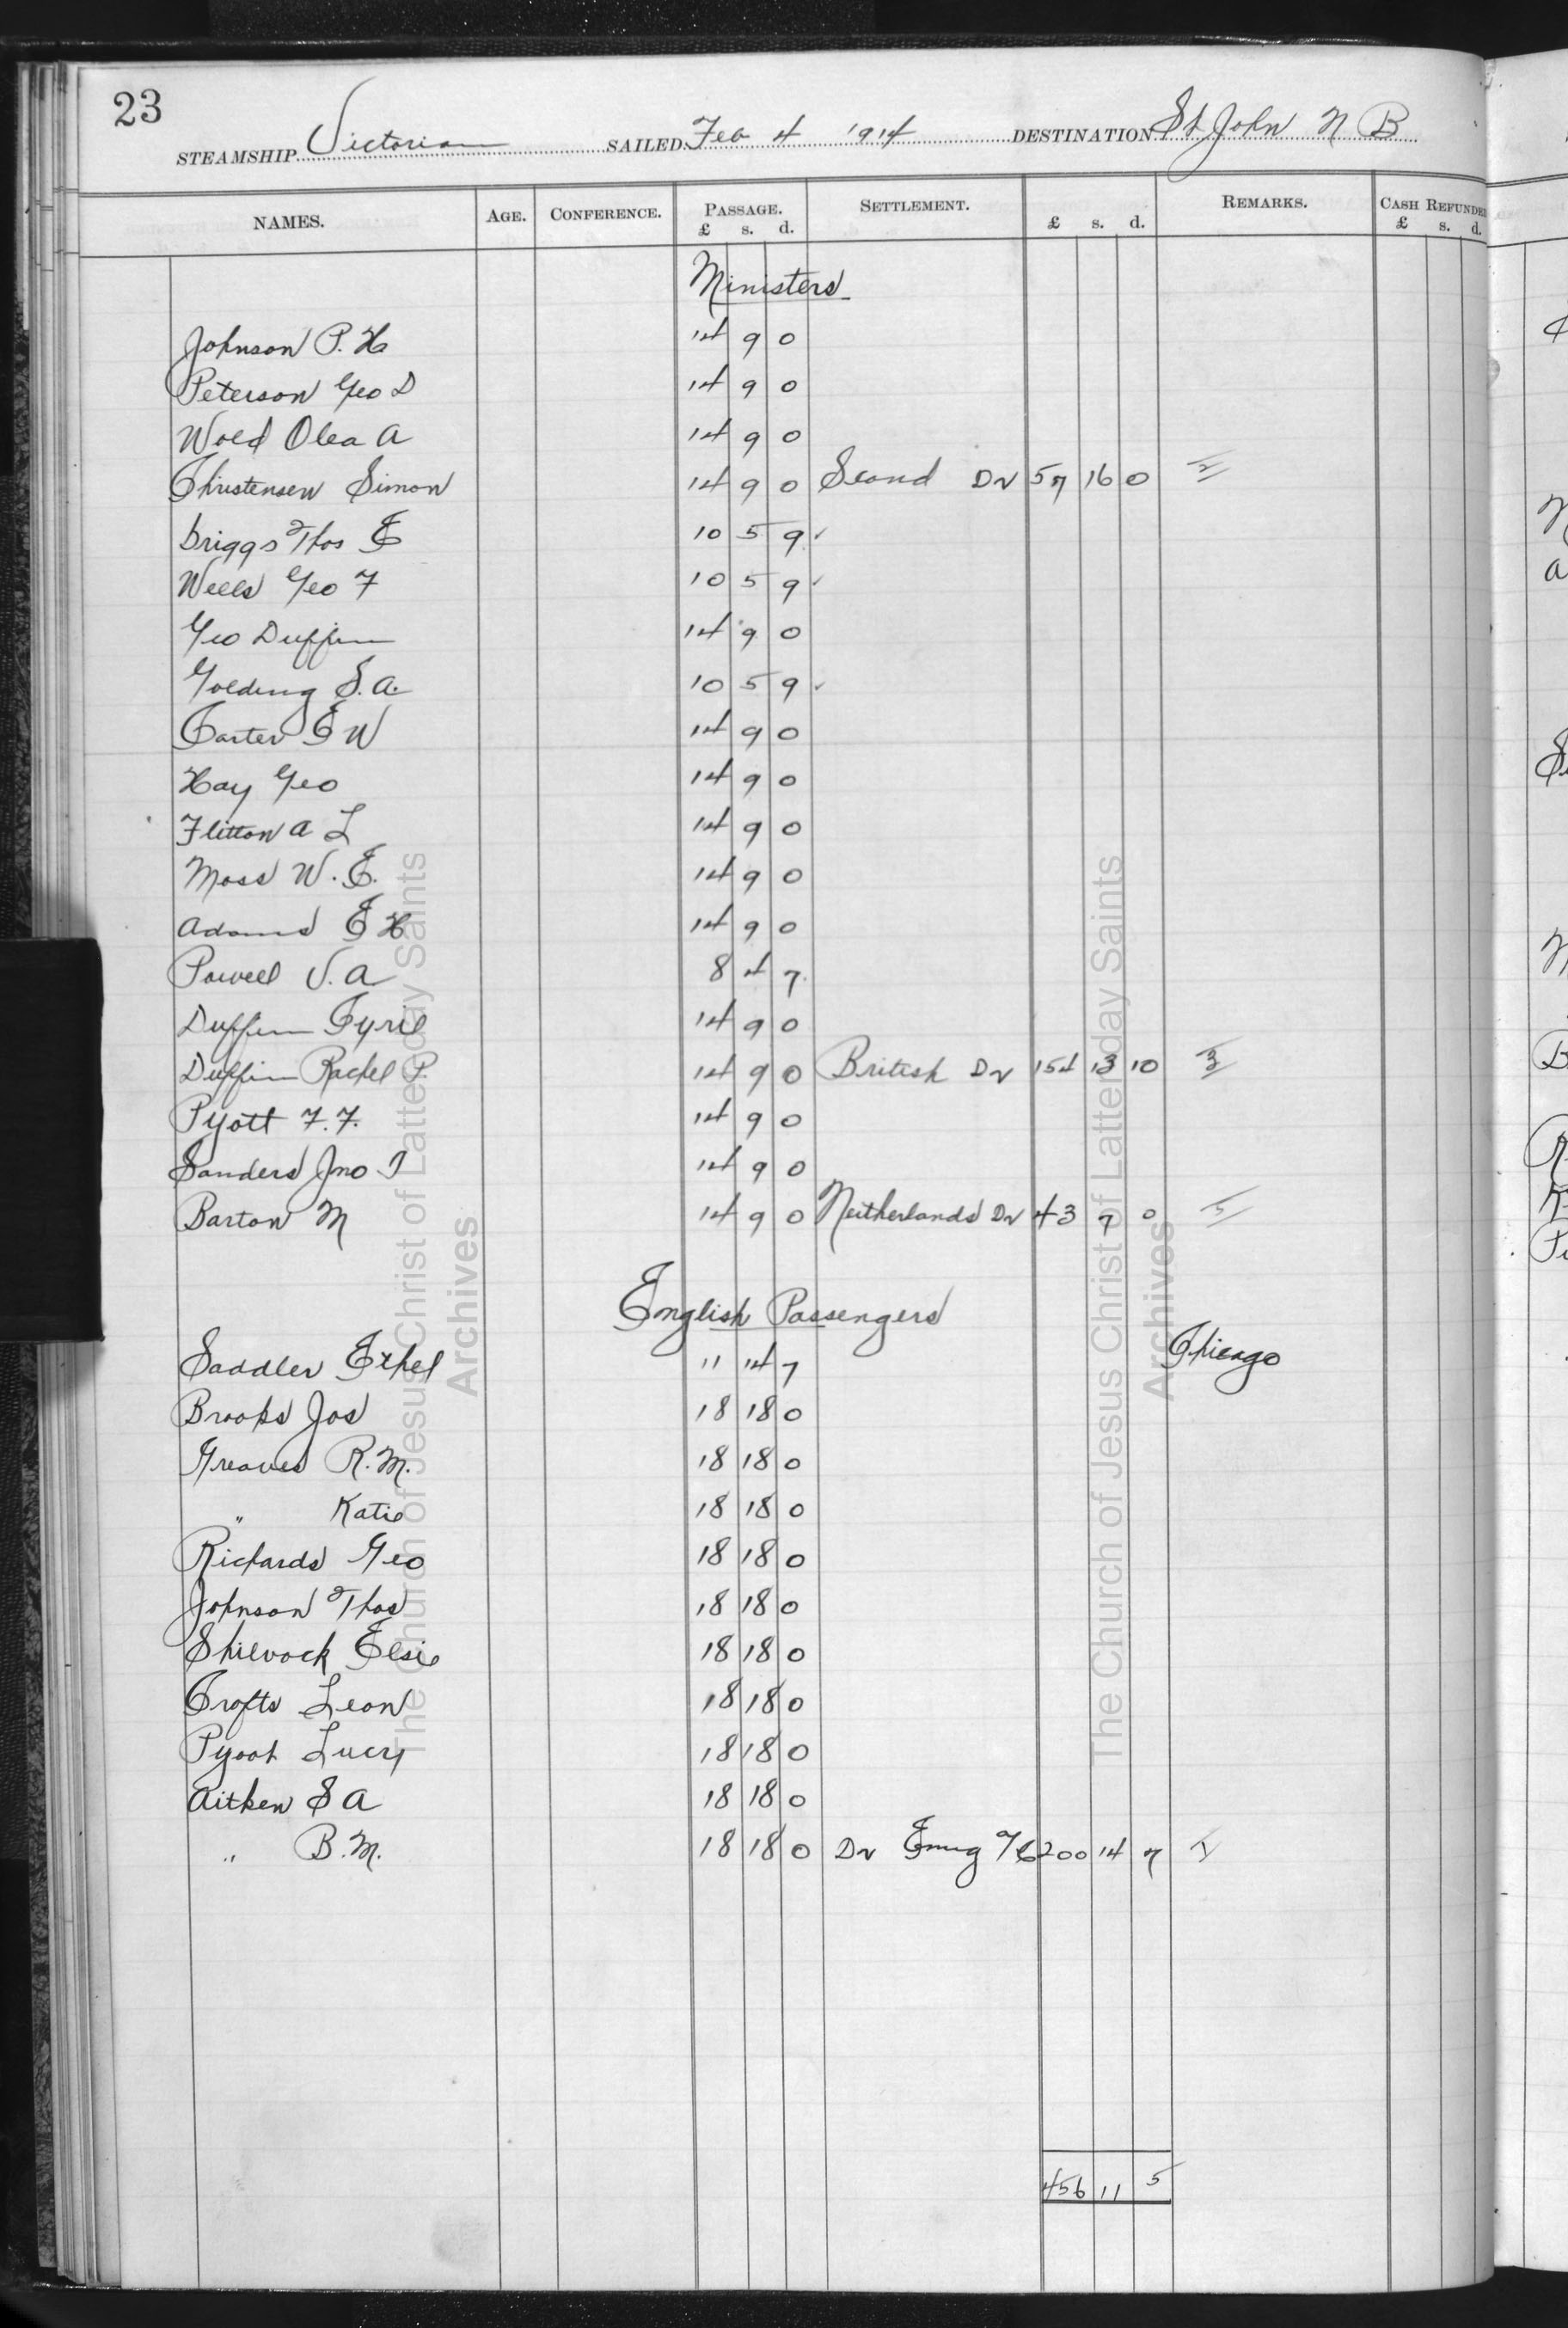 23
STEAMSHIP Victorian SAILED Feb 4 1914 DESTINATION St John N B
NAMES. AGE. CONFERENCE. PASSAGE. SETTLEMENT. REMARKS. CASH REFUNDED
£ s. d. £ s. d. £ s. d.
Ministers
Johnson P. H 14 9 0
Peterson Geo D 14 9 0
Wold Olea A 14 9 0
Christensen Simon 14 9 0 Scand Dr 57 16 0 2
Briggs Thos E 10 5 9 ✓
Wells Geo F 10 5 9 ✓
Geo Duffin 14 9 0
Golding S. A. 10 5 9 ✓
Carter E W 14 9 0
Hay Geo 14 9 0
Flitton A L 14 9 0
Moss W. E. 14 9 0
Adams E H 14 9 0
Powell V. A 8 4 7
Duffin Cyril 14 9 0
Duffin Rachel P. 14 9 0 British Dr 154 13 10 3
Pyott F. F. 14 9 0
Sanders Jno T 14 9 0
Barton M 14 9 0 Netherlands Dr 43 7 0 5
English Passengers
Saddler Ethel 11 14 7 Chicago
Brooks Jos 18 18 0
Greaves R. M. 18 18 0
" Katie 18 18 0
Richards Geo 18 18 0
Johnson Thos 18 18 0
Shilvock Elsie 18 18 0
Crofts Leon 18 18 0
Pyoot Lucy 18 18 0
Aitken S A 18 18 0
" B. M. 18 18 0 Dr Emig 200 14 7 1
456 11 5
The Church of Jesus Christ of Latter-day Saints
Archives
The Church of Jesus Christ of Latter-day Saints
Archives